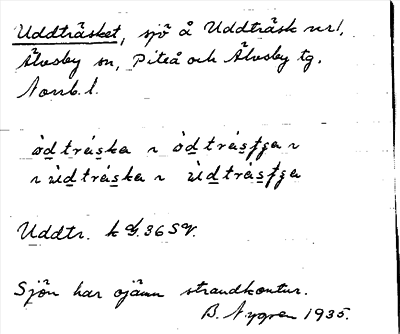 Uddträsket, sjö å Uddträsk nr 1,
Älvsby sn, Piteå och Älvsby tg.
Norrb. l.
òd̲tráska ~ òd̲tràsʃʒa ~
~ ùd̲tráska ~ ùd̲trásʃʒa
Uddtr. k G. 36 SV.
Sjön har ojämn strandkontur.
B. Nygren 1935.